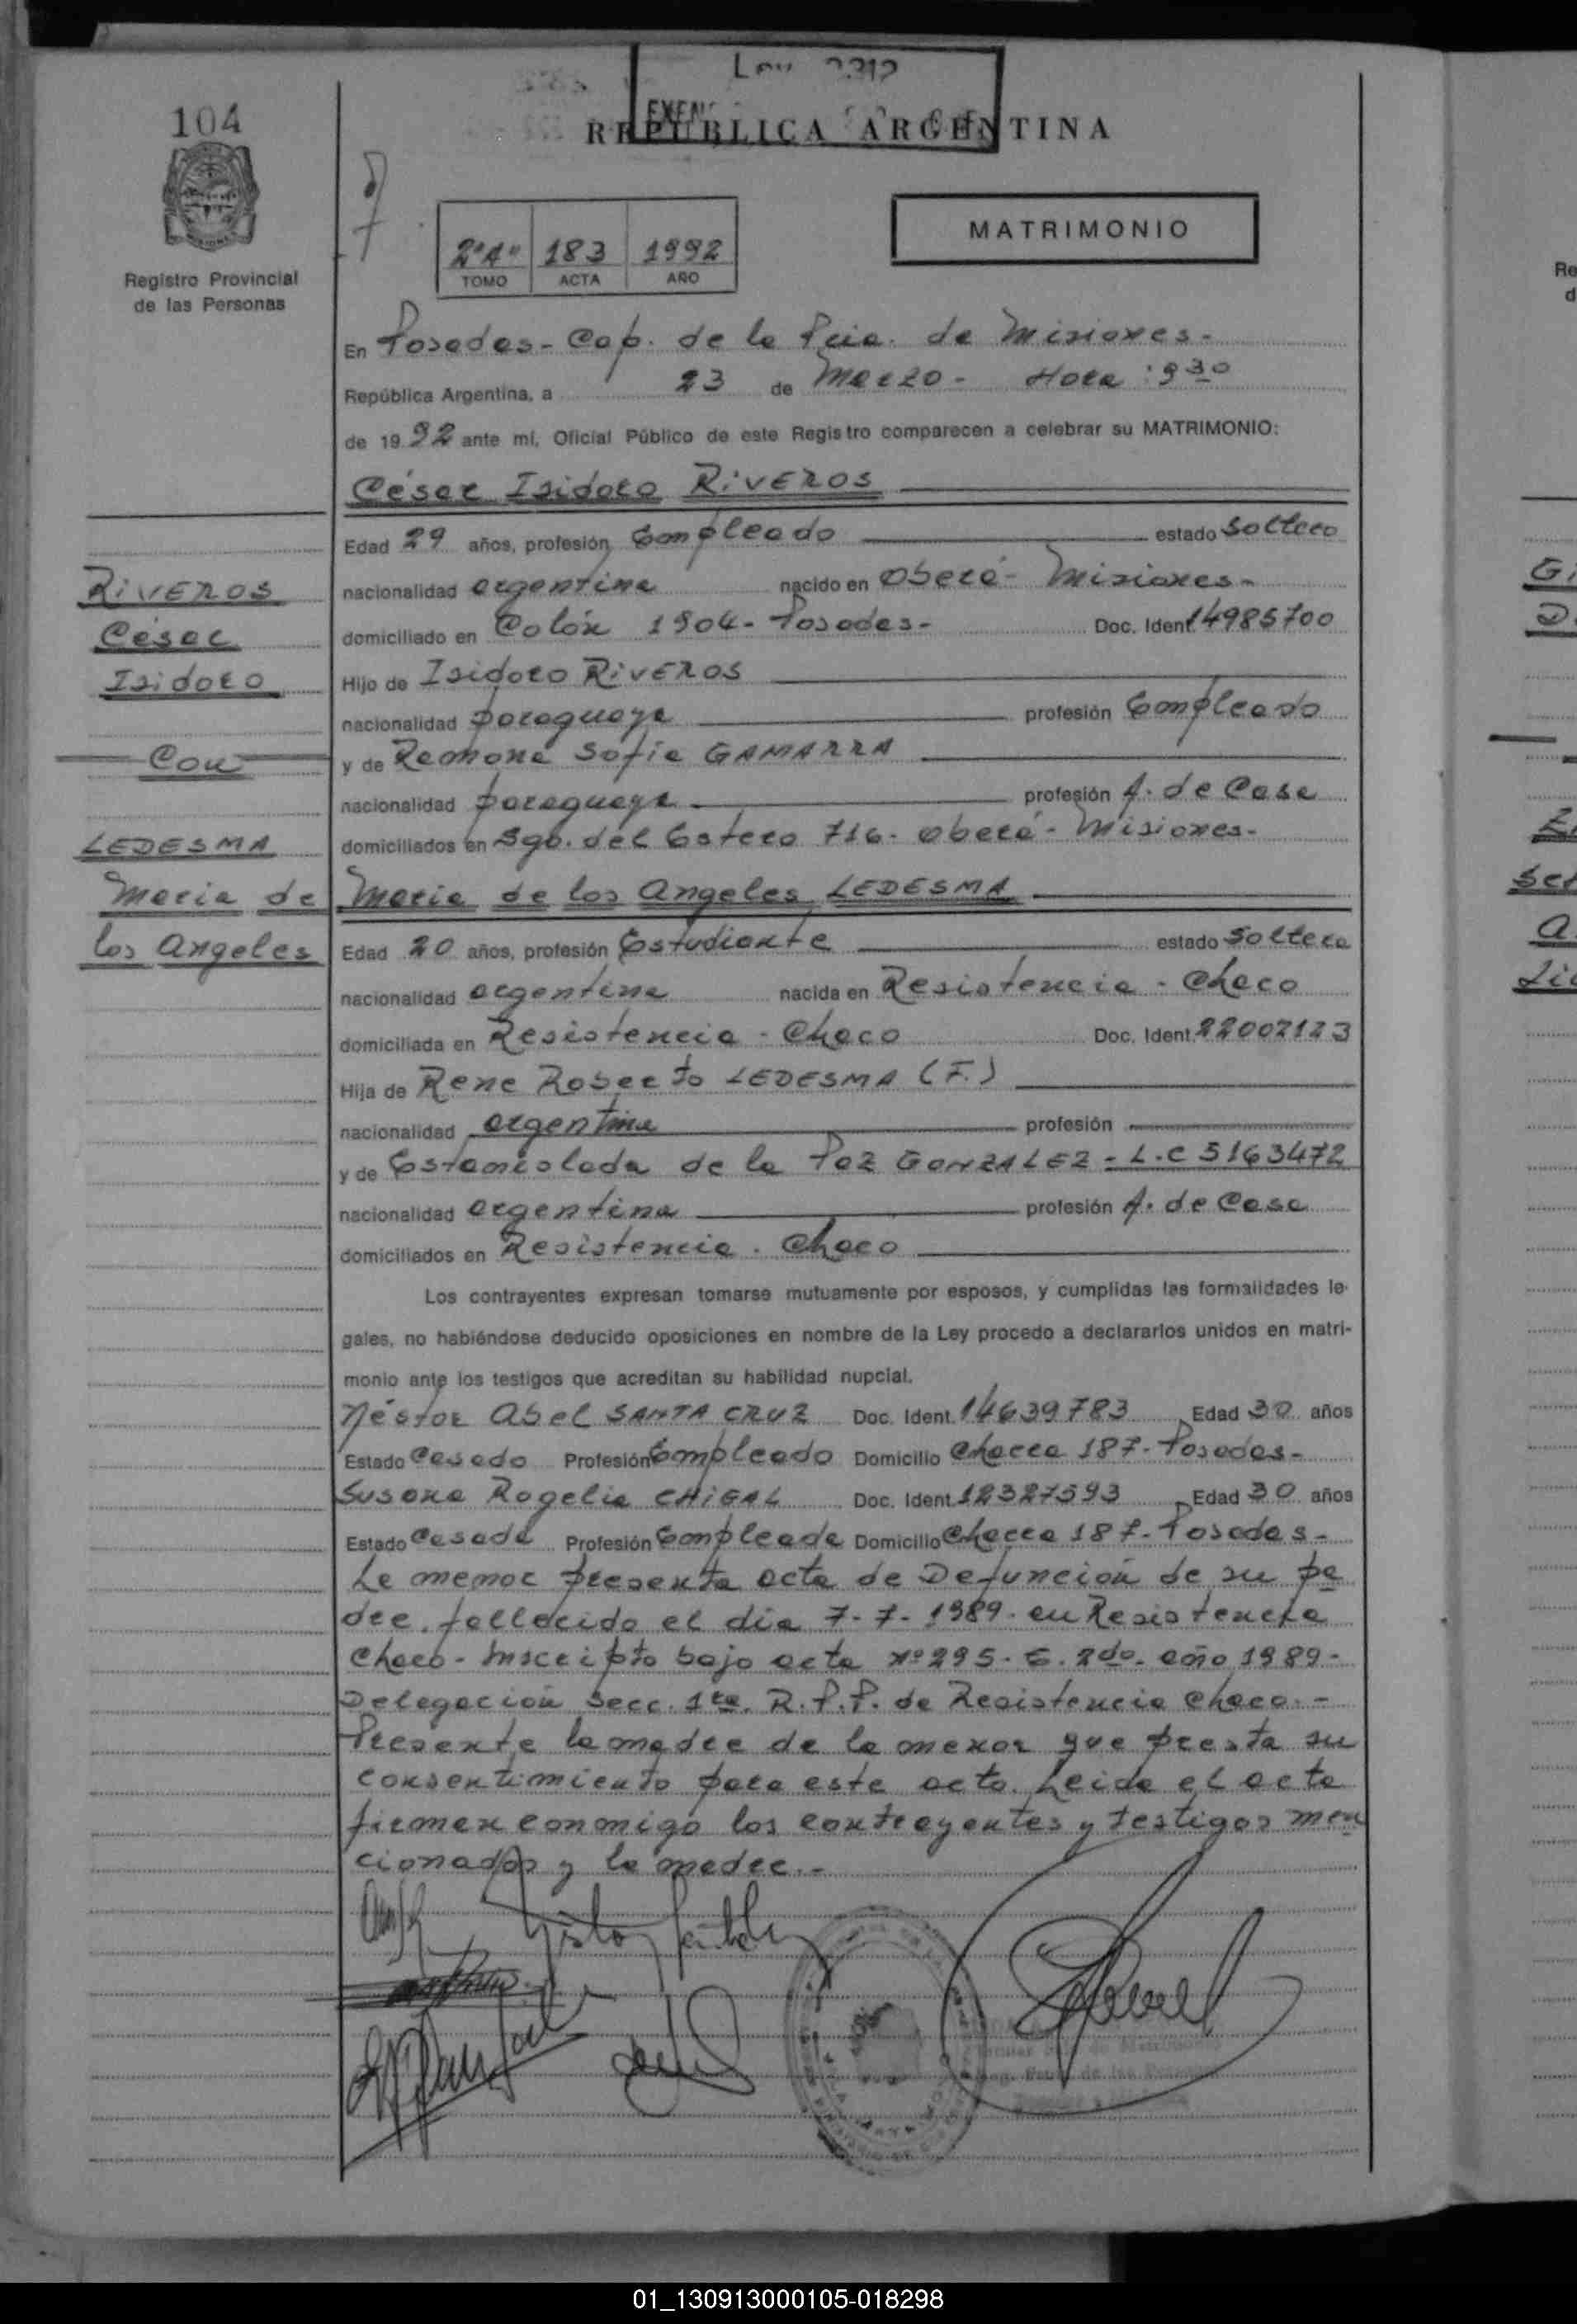 Ley 2312
104
REPUBLICA ARGENTINA
MATRIMONIO
2º"A" 183 1992
TOMO ACTA AÑO
Registro Provincial
de las Personas
En Posadas - Cap. de la Pcia. de Misiones -
República Argentina, a 23 de Marzo - Hora : 9 30
de 19 92 ante mí, Oficial Público de este Registro comparecen a celebrar su MATRIMONIO:
César Isidoro RIVEROS
Edad 29 años, profesión Empleado estado Soltero
nacionalidad argentina nacido en Oberá - Misiones -
domiciliado en Colón 1904 - Posadas - Doc. Ident. 14985700
Hijo de Isidoro RIVEROS
nacionalidad paraguaya profesión Empleado
y de Ramona Sofia GAMARRA
nacionalidad paraguaya profesión A. de Casa
domiciliados en Sgo. del Estero 716 - Oberá - Misiones -
RIVEROS
César
Isidoro
Con
LEDESMA
Maria de
los Angeles
Maria de los Angeles LEDESMA
Edad 20 años, profesión Estudiante estado Soltera
nacionalidad argentina nacida en Resistencia - Chaco
domiciliada en Resistencia - Chaco Doc. Ident. 22002123
Hija de Rene Roberto LEDESMA (F.)
nacionalidad argentina profesión
y de Estanislada de la Paz GONZALEZ - L.C 5163472
nacionalidad argentina profesión A. de Casa
domiciliados en Resistencia . Chaco
Los contrayentes expresan tomarse mutuamente por esposos, y cumplidas las formalidades le-
gales, no habiéndose deducido oposiciones en nombre de la Ley procedo a declararlos unidos en matri-
monio ante los testigos que acreditan su habilidad nupcial.
Néstor Abel SANTA CRUZ Doc. Ident. 14639783 Edad 30 años
Estado Casado Profesión Empleado Domicilio Chacra 187 - Posadas -
Susana Rogelia CHIGAL Doc. Ident. 12327593 Edad 30 años
Estado Casada Profesión Empleada Domicilio Chacra 187 - Posadas -
La menor presenta acta de Defunción de su pa
dre, fallecido el día 7-7-1989 - en Resistencia
Chaco - Inscripto bajo acta Nº 295 - T. 2do - año 1989 -
Delegación Secc. 1ra. R.P.P. de Resistencia Chaco. -
Presente la madre de la menor que presta su
consentimiento para este acto. Leida el acta
firman conmigo los contrayentes y testigos men
cionados y la madre. -
01_130913000105-018298